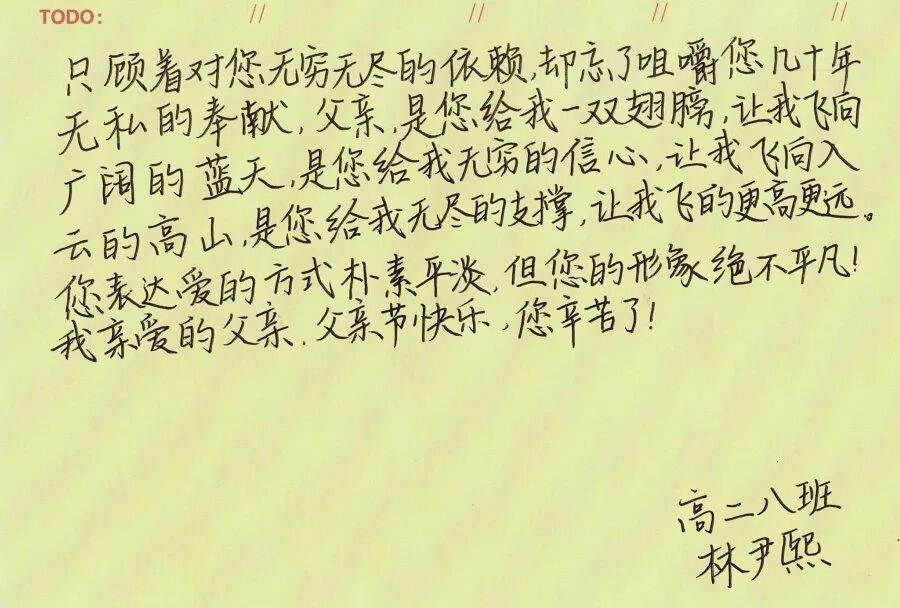 TODO: // // // //
只顾着对您无穷无尽的依赖,却忘了咀嚼您几十年
无私的奉献,父亲,是您给我一双翅膀,让我飞向
广阔的蓝天,是您给我无穷的信心,让我飞向入
云的高山,是您给我无尽的支撑,让我飞的更高更远。
您表达爱的方式朴素平淡,但您的形象绝不平凡!
我亲爱的父亲.父亲节快乐,您辛苦了!
高二八班
林尹熙